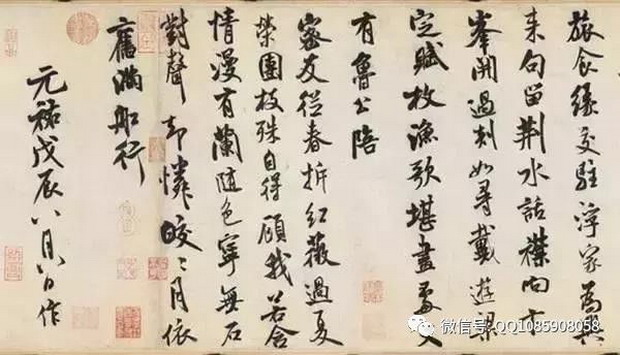 旅食緣交駐浮家為興
来句留荆水話襟向卞
峯開過剡如尋戴遊梁
定賦枚漁歌堪畫處又
有魯公陪
密友從春拆紅薇過夏
榮團枝殊自得顧我若含
情漫有蘭随色寧無石
對聲却憐皎〻月依
舊滿船行
元祐戊辰八月八日作
微信号: QQ1085908058